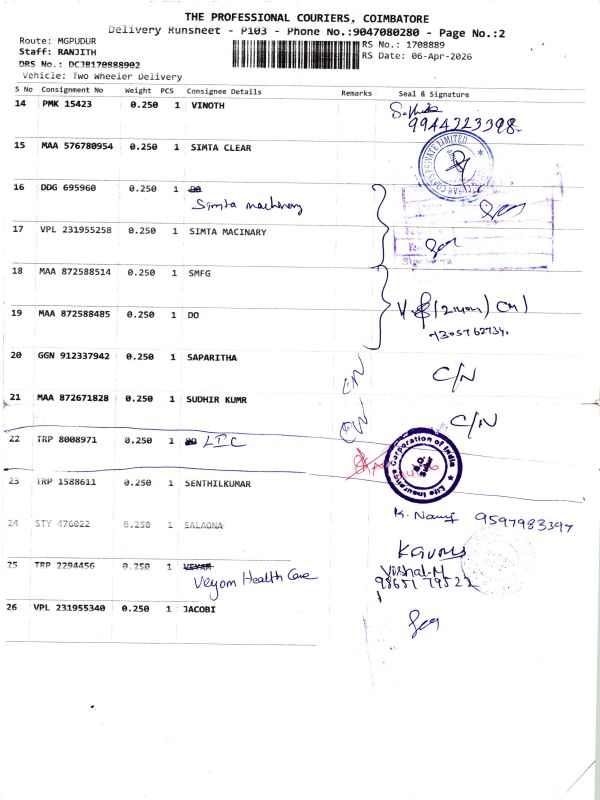 THE PROFESSIONAL COURIERS, COIMBATORE
Delivery Runsheet - P103 - Phone No.:9047080280 - Page No.:2
Route: MGPUDUR
RS No.: 1708889
Staff: RANJITH
RS Date: 06-Apr-2026
DRS No.: DCJB170888902
Vehicle: Two Wheeler Delivery
S No Consignment No Weight PCS Consignee Details Remarks Seal & Signature
14 PMK 15423 0.250 1 VINOTH
9944723398
15 MAA 576780954 0.250 1 SIMTA CLEAR
PRIVATE LIMITED
16 DDG 695960 0.250 1
Simta machinery
17 VPL 231955258 0.250 1 SIMTA MACINARY
18 MAA 872588514 0.250 1 SMFG
19 MAA 872588485 0.250 1 DO
7305762734
20 GGN 912337942 0.250 1 SAPARITHA
C/N
C/N
21 MAA 872671828 0.250 1 SUDHIR KUMR
C/N
C/N
22 TRP 8008971 0.250 1 DO LIC
Life Insurance Corporation of India
23 TRP 1588611 0.250 1 SENTHILKUMAR
9597983397
24 STY 476022 0.250 1 SALAONA
25 TRP 2294456 0.250 1 VEYAM
Veyom Health Care
Vishal-M
98651 79522
26 VPL 231955340 0.250 1 JACOBI